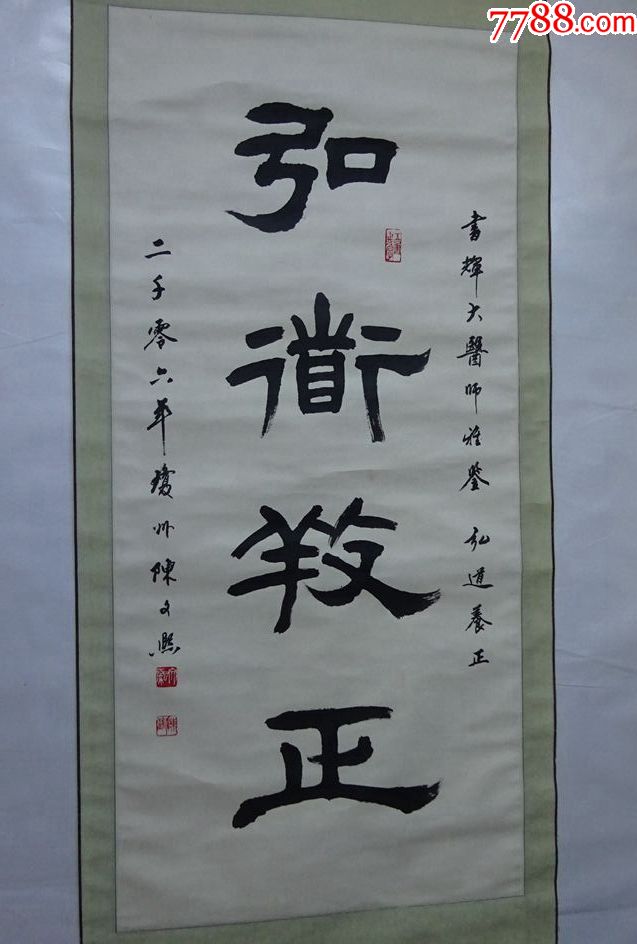 7788.com
弘衜𢼝正
書輝大醫師雅鑒 弘道養正
二千零六年瓊州陳文熙